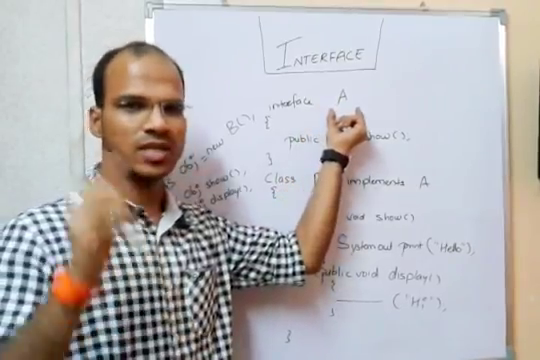 INTERFACE
interface A
{
public show();
}
Class implements A
{
void show()
System out print ("Hello");
public void display()
{
("Hi");
}
}
obj = new B();
obj show();
obj display();